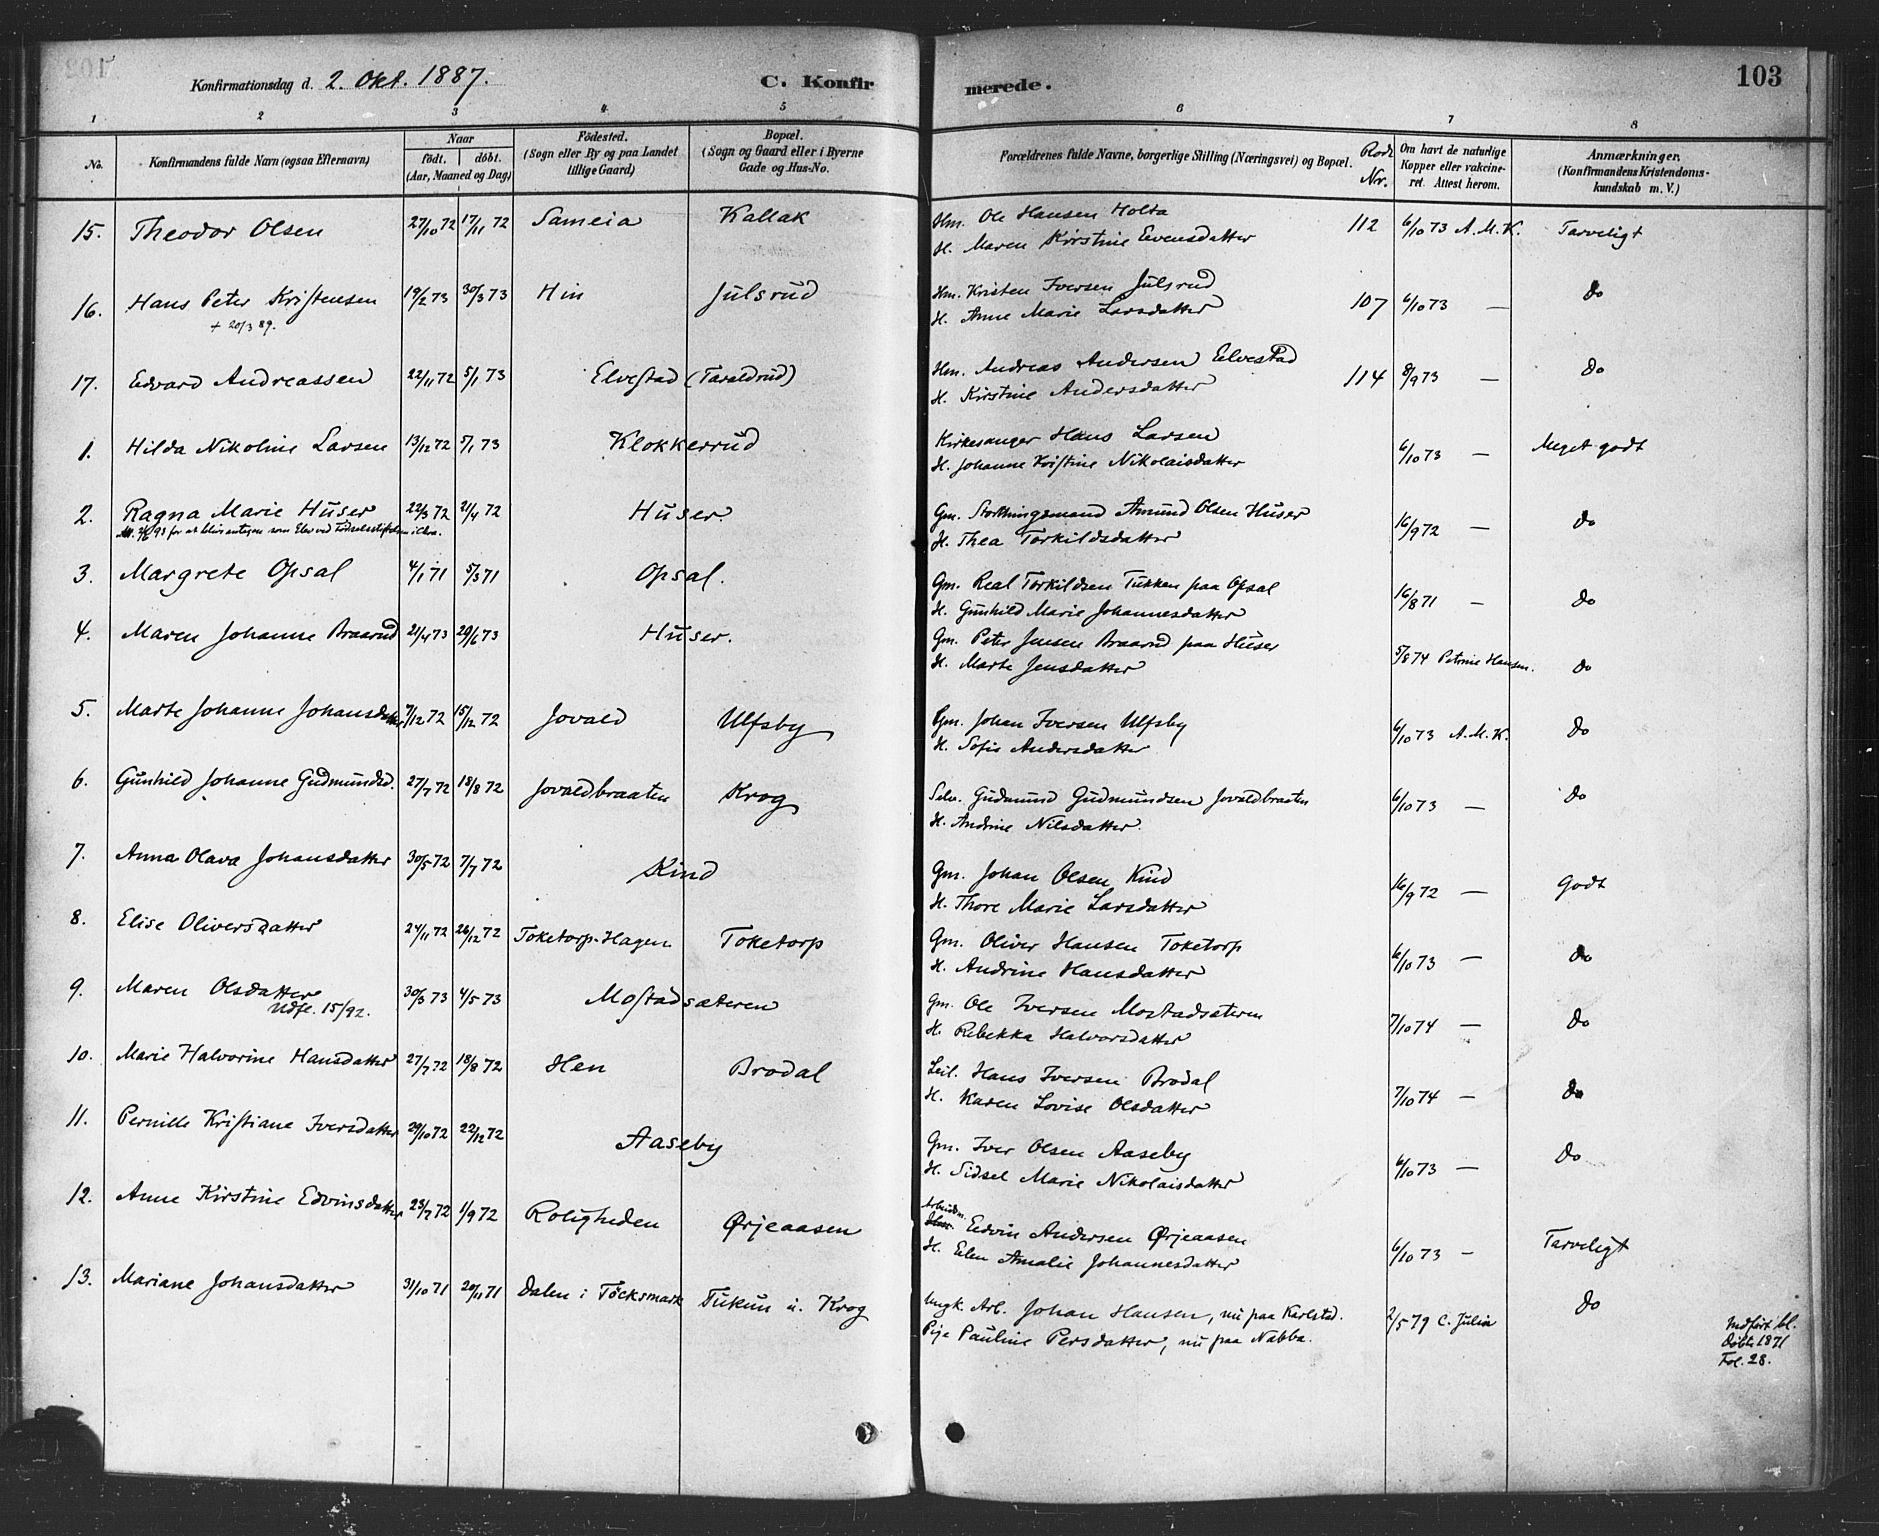 Konfirmationsdag d. 2. Okt. 1887. C. Konfirmerede. 103
1 2 3 4 5 6 7 8
No. Konfirmandens fulde Navn (ogsaa Efternavn) Naar födt. döbt. (Aar, Maaned og Dag) Födested. (Sogn eller By og paa Landet tillige Gaard) Bopæl. (Sogn og Gaard eller i Byerne Gade og Hus-No. Forældrenes fulde Navne, borgerlige Stilling (Næringsvei) og Bopæl. Rode Nr. Om havt de naturlige Kopper eller vakcineret. Attest herom. Anmærkninger. (Konfirmandens Kristendomskundskab m. V.)
15. Theodor Olsen 27/10 72 17/11 72 Sameia Kallak Hm. Ole Hansen Holta 112 6/10 73 A. M. K. Tarveligt
H. Maren Kirstine Evensdatter
16. Hans Peter Kristensen 19/2 73 30/3 73 Hin Julsrud Hm. Kristen Iversen Julsrud 107 6/10 73 — Do
+ 20/3 89. H. Anne Marie Larsdatter
17. Edvard Andreassen 22/11 72 5/1 73 Elvestad (Taraldrud) Hm. Andreas Andersen Elvestad 114 8/9 73 — Do
H. Kirstine Andersdatter
1. Hilda Nikoline Larsen 13/12 72 5/1 73 Klokkerrud Kirkesanger Hans Larsen 6/10 73 — Meget godt
H. Johanne Kristine Nikolaisdatter
2. Ragna Marie Huser 22/3 72 21/4 72 Huser. Gm. Storthingsmand Amund Olsen Huser 16/9 72 — Do
for at blive antagen som Elev ved Födselsstiftelsen i Chra. H. Thea Torkildsdatter
3. Margrete Opsal 4/1 71 5/3 71 Opsal. Gm. Real Torkildsen Tukken paa Opsal 16/8 71 — Do
H. Gunhild Marie Johannesdatter
4. Maren Johanne Braarud 21/4 73 29/6 73 Huser. Gm. Peter Jensen Braarud paa Huser 5/8 74 Petrine Hansen. Do
H. Marte Jensdatter
5. Marte Johanne Johansdatter 7/12 72 15/12 72 Jovald Ulfsby Gm. Johan Iversen Ulfsby 6/10 73 A. M. K. Do
H. Sofie Andersdatter
6. Gunhild Johanne Gudmundsd. 27/7 72 18/8 72 Jovaldbraaten Krog Selv. Gudmund Gudmundsen Jovaldbraaten 6/10 73 — Do
H. Andrine Nilsdatter.
7. Anna Olava Johansdatter 30/5 72 7/7 72 Kind Gm. Johan Olsen Kind 16/9 72 — Godt
H. Thore Marie Larsdatter
8. Elise Oliversdatter 24/11 72 26/12 72 Toketorp-Hagen Toketorp Gm. Oliver Hansen Toketorp 6/10 73 — Do
H. Andrine Hansdatter
9. Maren Olsdatter 30/3 73 4/5 73 Mostadsæteren Gm. Ole Iversen Mostadsæteren 7/10 74 — Do
Udfl. 15/92. H. Rebekka Halvorsdatter
10. Marie Halvorine Hansdatter 27/7 72 18/8 72 Hen Brodal Leil. Hans Iversen Brodal 7/10 74 — Do
H. Karen Lovise Olsdatter
11. Pernille Kristiane Iversdatter 29/10 72 22/12 72 Aaseby Gm. Iver Olsen Aaseby 6/10 73 — Do
H. Sidsel Marie Nikolaisdatter
12. Anne Kirstine Edvinsdatter 23/7 72 1/9 72 Roligheden Ørjeaasen Arbeidm. Edvin Andersen Ørjeaasen 6/10 73 — Tarveligt
H. Elen Amalie Johannesdatter
13. Mariane Johansdatter 31/10 71 20/11 71 Dalen i Töcksmark Tukun u. Krog Ungk. Arb. Johan Hansen, nu paa Karlstad. 2/5 79 C. Julin Do
Pige Pauline Persdatter, nu paa Nabba. Indfört bl. Döbte 1871 Fol. 28.